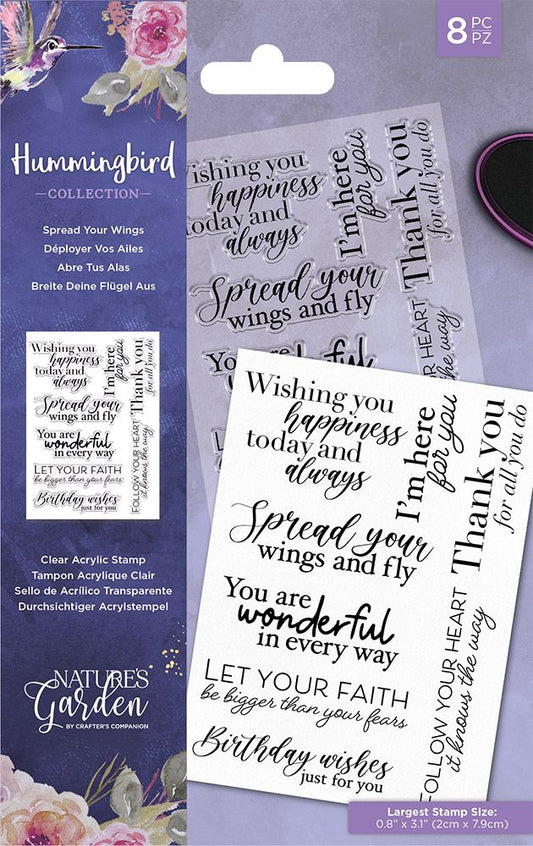 8 PC
PZ
Hummingbird
COLLECTION
Spread Your Wings
Déployer Vos Ailes
Abre Tus Alas
Breite Deine Flügel Aus
Wishing you
happiness
today and
always
I'm here
for you
Thank you
for all you do
Spread your
wings and fly
You are
wonderful
in every way
FOLLOW YOUR HEART
it knows the way
LET YOUR FAITH
be bigger than your fears
Birthday wishes
just for you
Clear Acrylic Stamp
Tampon Acrylique Clair
Sello de Acrílico Transparente
Durchsichtiger Acrylstempel
NATURE'S
Garden
BY CRAFTER'S COMPANION
ishing you
happiness
today and
always
I'm here
for you
Thank you
for all you do
Spread your
wings and fly
You are
wonderful
HEART
the way
Wishing you
happiness
today and
always
I'm here
for you
Thank you
for all you do
Spread your
wings and fly
You are
wonderful
in every way
FOLLOW YOUR HEART
it knows the way
LET YOUR FAITH
be bigger than your fears
Birthday wishes
just for you
Largest Stamp Size:
0.8" x 3.1" (2cm x 7.9cm)